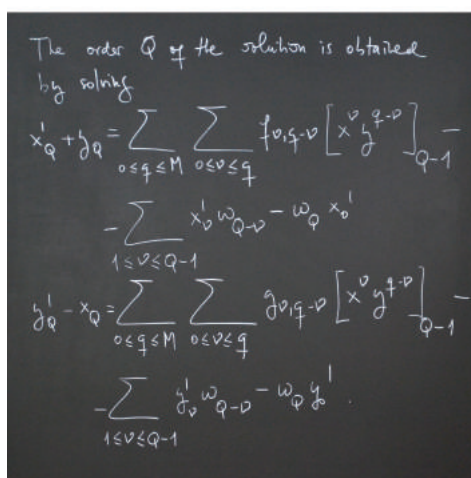 The order Q of the solution is obtained
by solving
x'_Q + y_Q = ∑_{0≤q≤M} ∑_{0≤ν≤q} f_{ν,q-ν} [x^ν y^{q-ν}]_{Q-1} -
- ∑_{1≤ν≤Q-1} x'_ν ω_{Q-ν} - ω_Q x'_0
y'_Q - x_Q = ∑_{0≤q≤M} ∑_{0≤ν≤q} g_{ν,q-ν} [x^ν y^{q-ν}]_{Q-1} -
- ∑_{1≤ν≤Q-1} y'_ν ω_{Q-ν} - ω_Q y'_0.